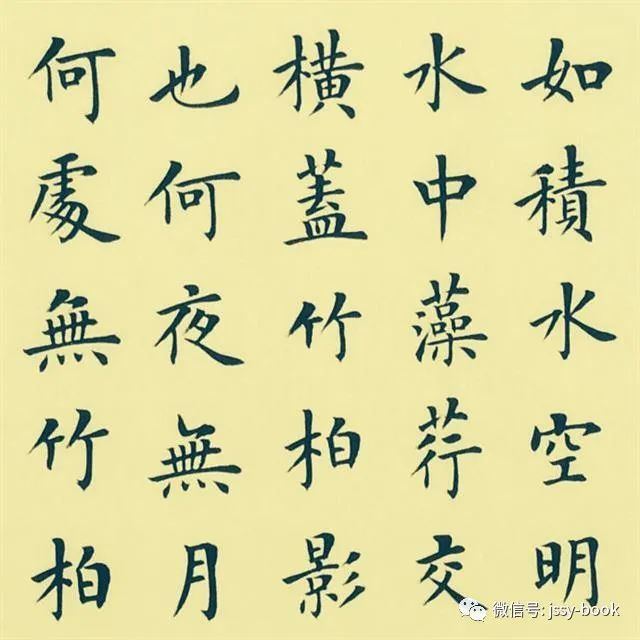 如積水空明
水中藻荇交
橫蓋竹柏影
也何夜無月
何處無竹柏
微信号: jssy-book